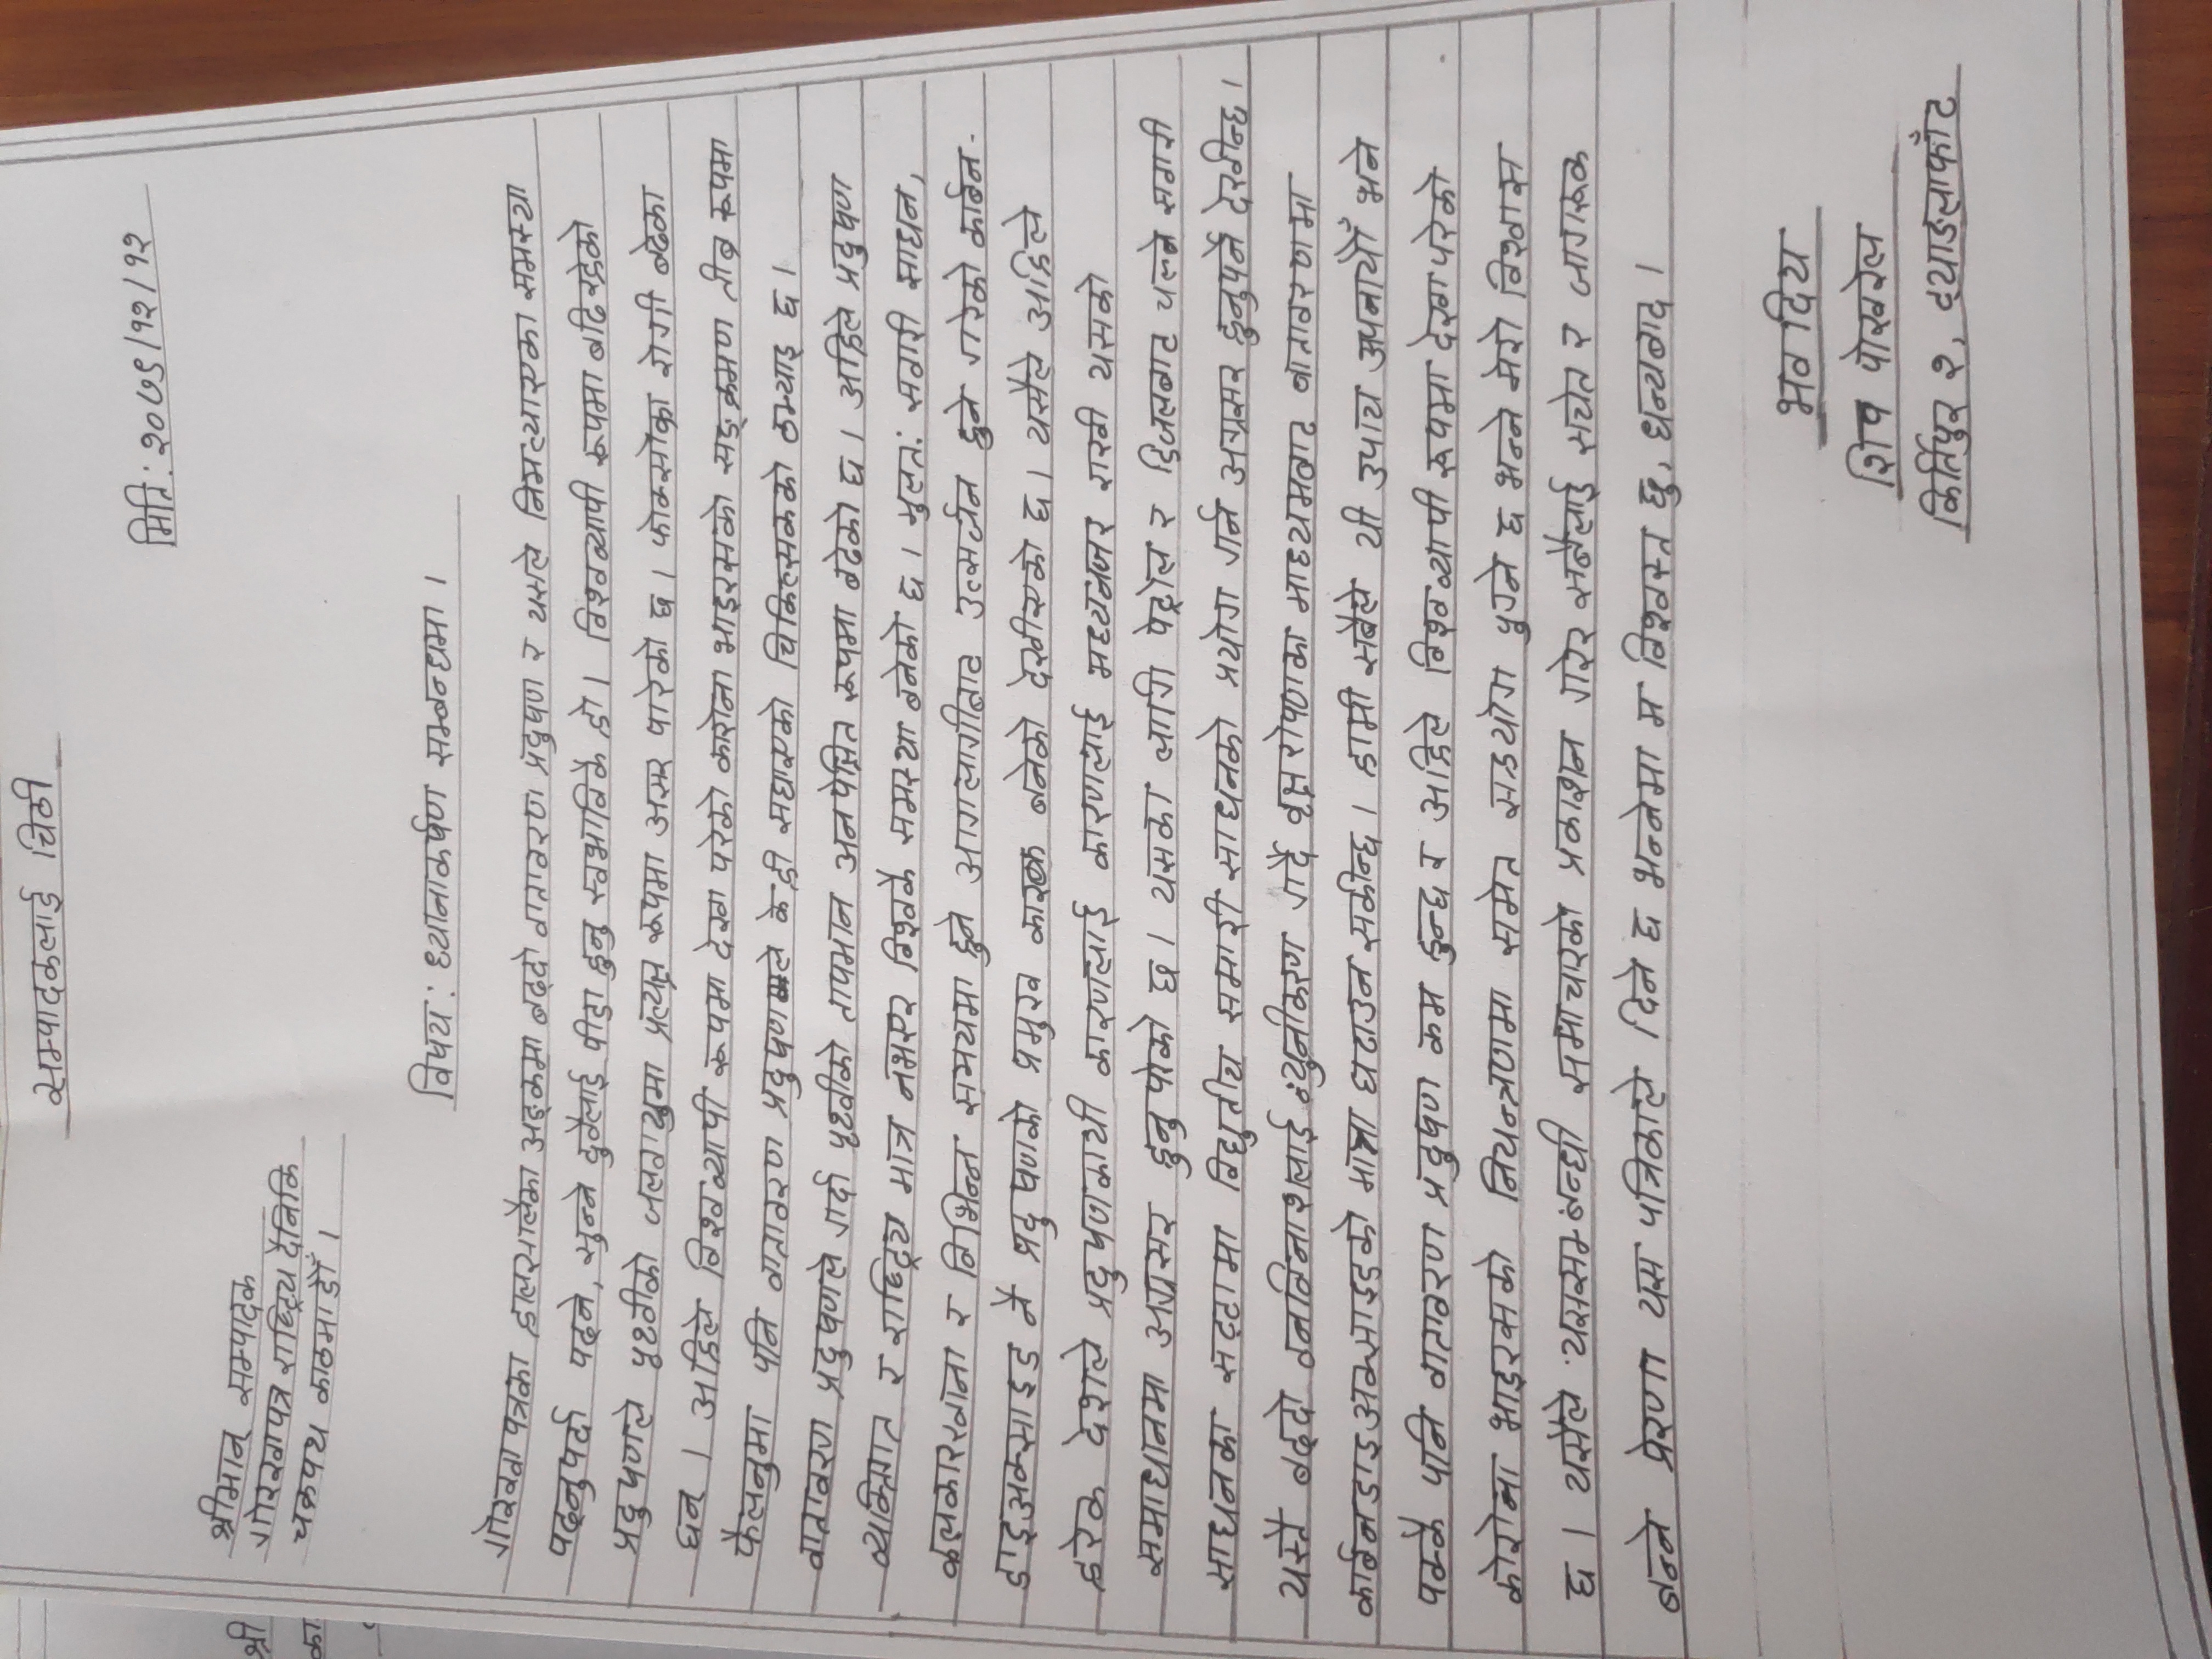 सम्पादकलाई चिठी
मिति: २०७९/१२/१२
श्रीमान् सम्पादक
गोरखापत्र राष्ट्रिय दैनिकि
चक्रपथ काठमाडौँ ।
विषय: ध्यानाकर्षण सम्बन्धमा ।
गोरखापत्रका हालसालैका अङ्कमा बढ्दो वातावरण प्रदुषण र यसले निम्त्याएका समस्या
पढ्नुपर्दा पढ्ने, सुन्ने दुवैलाई पीडा हुनु स्वभाविकै हो। विश्वव्यापी रूपमा बढिरहेको
प्रदुषणले पृथ्वीको जलवायुमा प्रत्यक्ष रूपमा असर पारेको छ। फोक्सोका रोगी बढेका
छन् । अहिले विश्वव्यापी रूपमा देखा परेको कारोना भाइरसको सङ्क्रमण तीब्र रूपमा
फैलनुमा पनि वातावरण प्रदुषणले केही सघाएको चिकित्सकको ठम्याइ छ।
वातावरण प्रदुषणले गर्दा पृथ्वीको तापमान अनपेक्षित रूपमा बढेको छ। अहिले प्रदुषण
व्यक्तिगत र राष्ट्रिय मात्र नभएर विश्वकै समस्या बनेको छ। मुलत: सवारी साधन,
कलकारखाना र विभिन्न समयमा हुने आगलागीबाट उत्सर्जन हुने गरेको कार्बन-
डाइअक्साइड नै प्रदुषणको प्रमुख कारक बनेको देखीएको छ। यसैले अहिले
हरेक देशले प्रदुषणका यी कारणलाई कारणलाई मध्यनजर राखी यसको
समाधानमा अग्रसर हुनु परेको छ। यसका लागि पेट्रोल र डिजलबाट चल्ने सवारी
साधनका सट्टामा विद्युतीय समारी साधनको प्रयोग गर्न अग्रसर हुनुपर्ने देखीन्छ।
यस्तै बढ्दो वनविनाशलाई न्युनीकरण गर्दै वृक्षरोपणका माध्यमबाट वातावरणमा
कार्बनडाइअक्साइडको मात्रा घटाउन सकीन्छ। हामी सबैले यी उपाय अपनायौँ भने
पक्कै पनि वातावरण प्रदुषण कम हुन्छ र अहिले विश्वव्यापी रूपमा देखा परेको
कोरोना भाइरसको नियन्त्रणमा समेत सहयोग पुग्ने छ भन्ने मेरो विश्वास
छ । यसैले यससम्बन्धी समाचारको प्रकाशन गरेर सबैलाई सचेत र जागरूक
बन्ने प्रेरणा यस पत्रिकाले दिने छ भन्नेमा म विश्वस्त छु, धन्यबाद ।
भवदिय
शिव पोखरेल
किर्तिपुर २, ट्याङ्लाफाँट